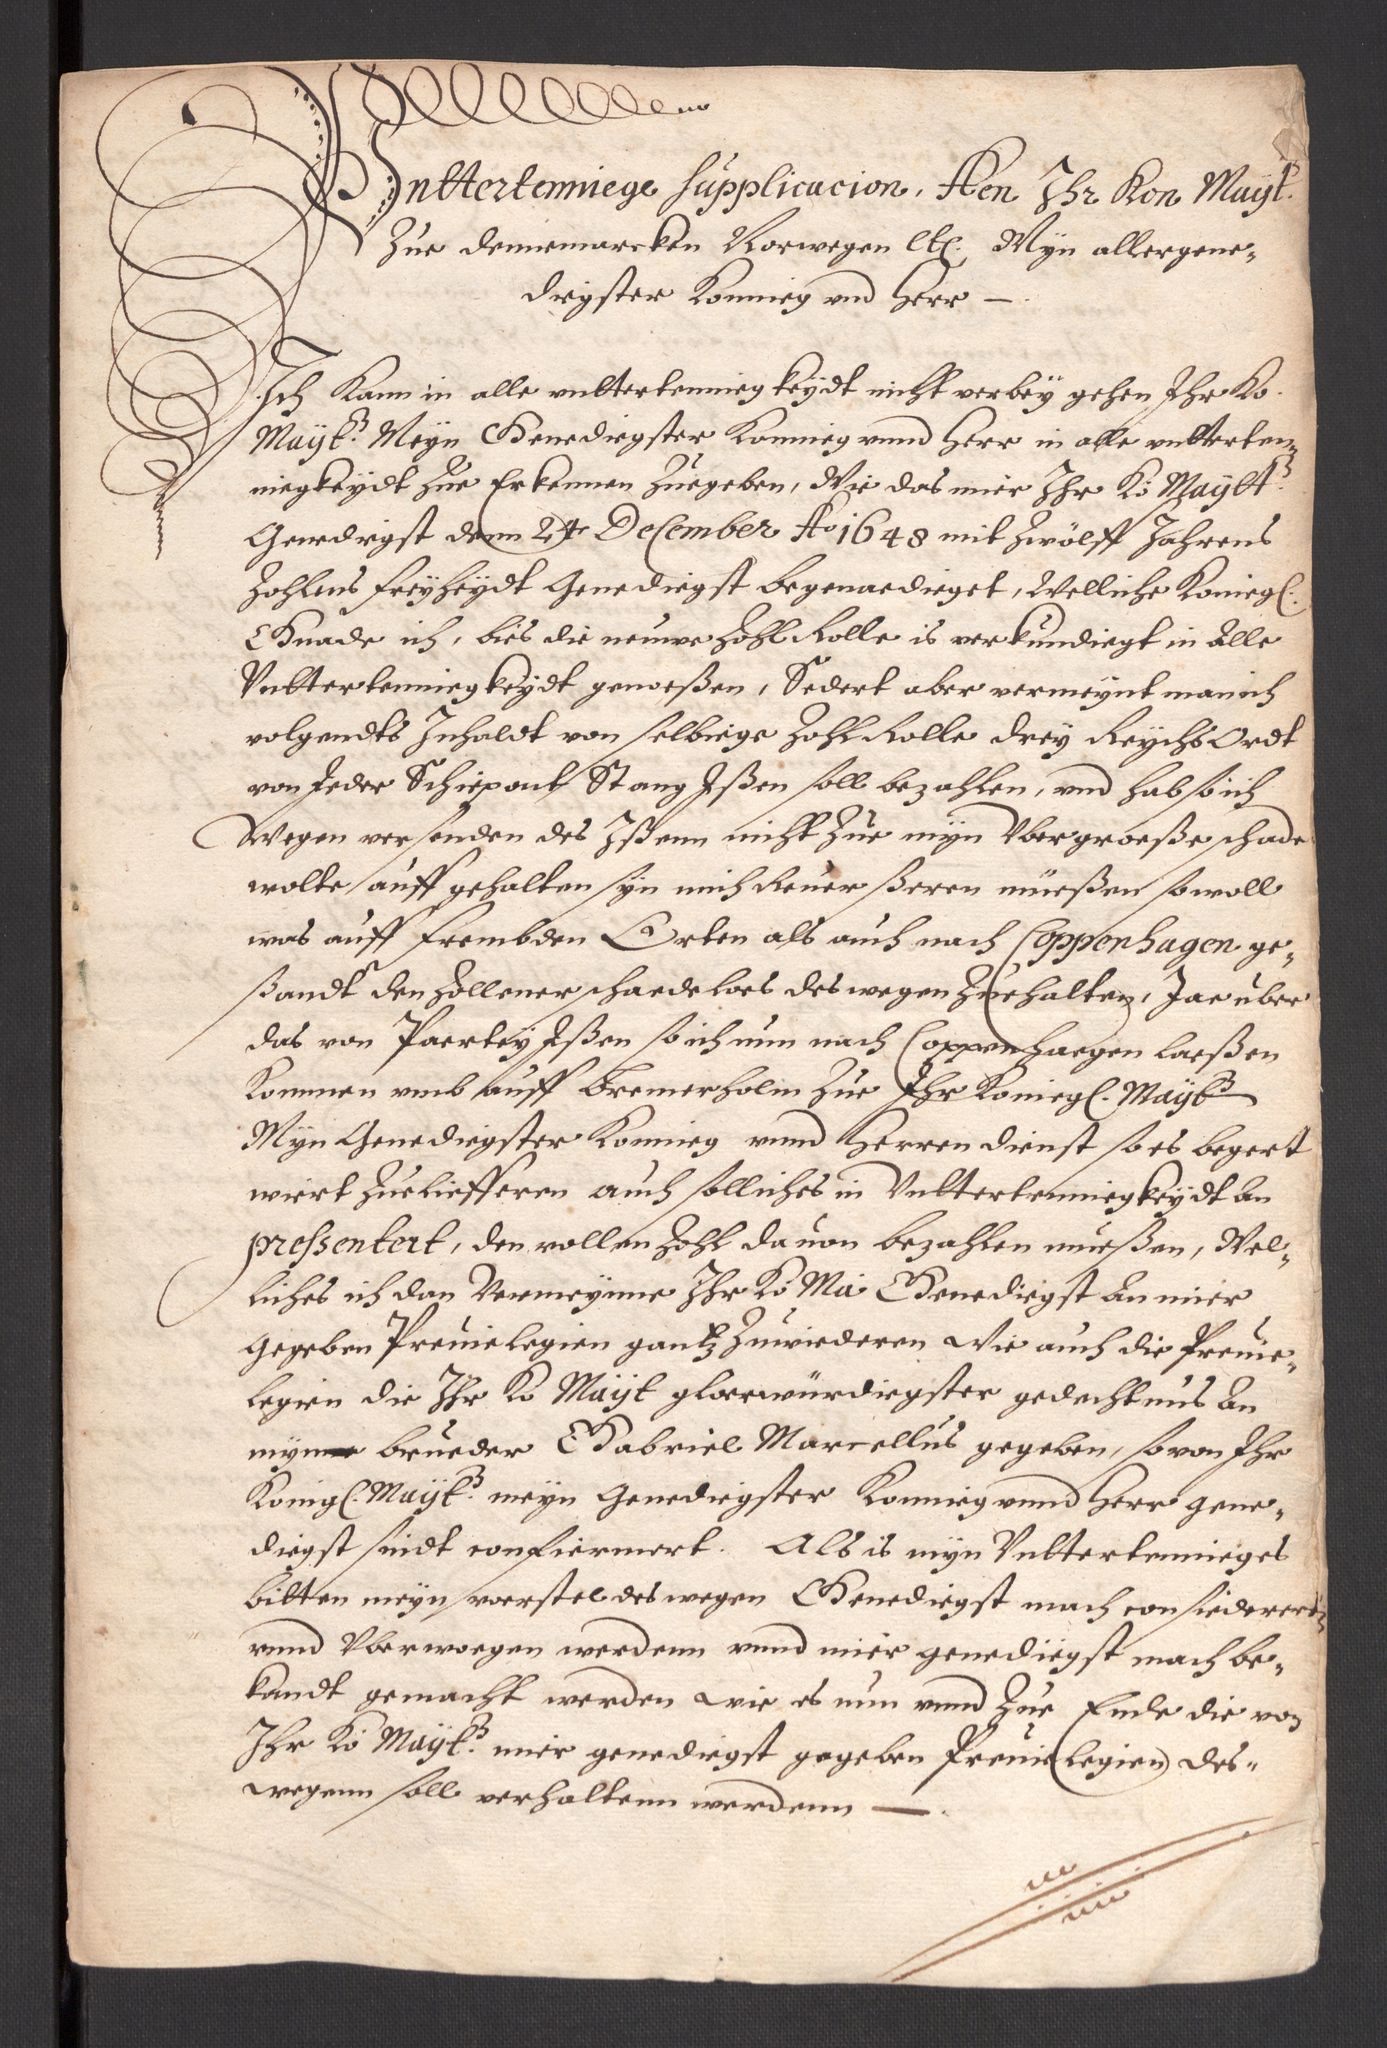 Untterteniege supplicacion, Aen Ihr Kon Mayt.
Zue dennemarcken Norwegen etc. Myn allergene-
drigster Konnieg und Herr —.
Ich Kann in alle untterteniegkeydt nicht verbey gehen Ihr Ko.
Mayt. Meyn Genediegster Konnieg unnd Herr in alle untterten-
niegkeydt Zue Erkennen Zuegeben, Wie das mier Ihr Kö Maytt.
Genedigst denn 24 December Ao 1648 mit Zwölff Jahrens
Zohlens freyheydt Genediegst begenaedieget, Welliche Koniegl.
Gnade ich, bies die neuwe Zohl Rolle is verkundiegt in Alle
Untterteniegkeydt genoeßen, Sedert aber vermeynt man ich
volgendts Inhaldt von selbiege Zohl Rolle drey Reychs Ordt
von Jeder Schiepont Stang Ißen soll bezahlen, und hab so ich
Wegen versenden des Ißenn nicht Zue myn Ubergroeße schade
wolte auff gehalten syn mich Reuerßeren müeßen so woll
was auff frembden Orten als auch nach Coppenhagen ge-
ßandt den Zöllener schaedeloes deswegen Zuehalten, Jae uber
das von Paertey Ißen so ich nun nach Coppenhaegen laeßen
Kommen umb auff Bremerholm Zue Ihr Koniegl. Mayt.
Myn Genediegster Konnieg unnd Herren dienst so es begert
wiert Zueliefferen auch solliches in Untterteniegkeydt an
pressentert, den vollen Zohl dauon bezahlen mueßen, Wel-
liches ich dan Vermeynne Ihr Kö Ma Genediegst an mier
gegeben Preuielegien gantz Zuwiederen Wie auch die Preuie-
legien die Ihr Ko Mayt gloerwürdiegster gedechtnus an
mynne brueder Gabriel Marcellus gegeben, so von Ihr
Konigl. Mayt. meyn Genediegster Konnieg unnd Herr gene-
diegst sindt confiermert. Als is myn Untterteniegs
bitten meyn voerstel deswegen Genediegst mach consiederert
unnd Uberwoegen werdenn unnd mier genediegst mach be-
kandt gemacht werden Wie es nun unnd Zue Ende die von
Ihr Kö Mayt. mier genediegst gegeben Preuielegien des-
wegenn soll verhaltenn werdenn —.